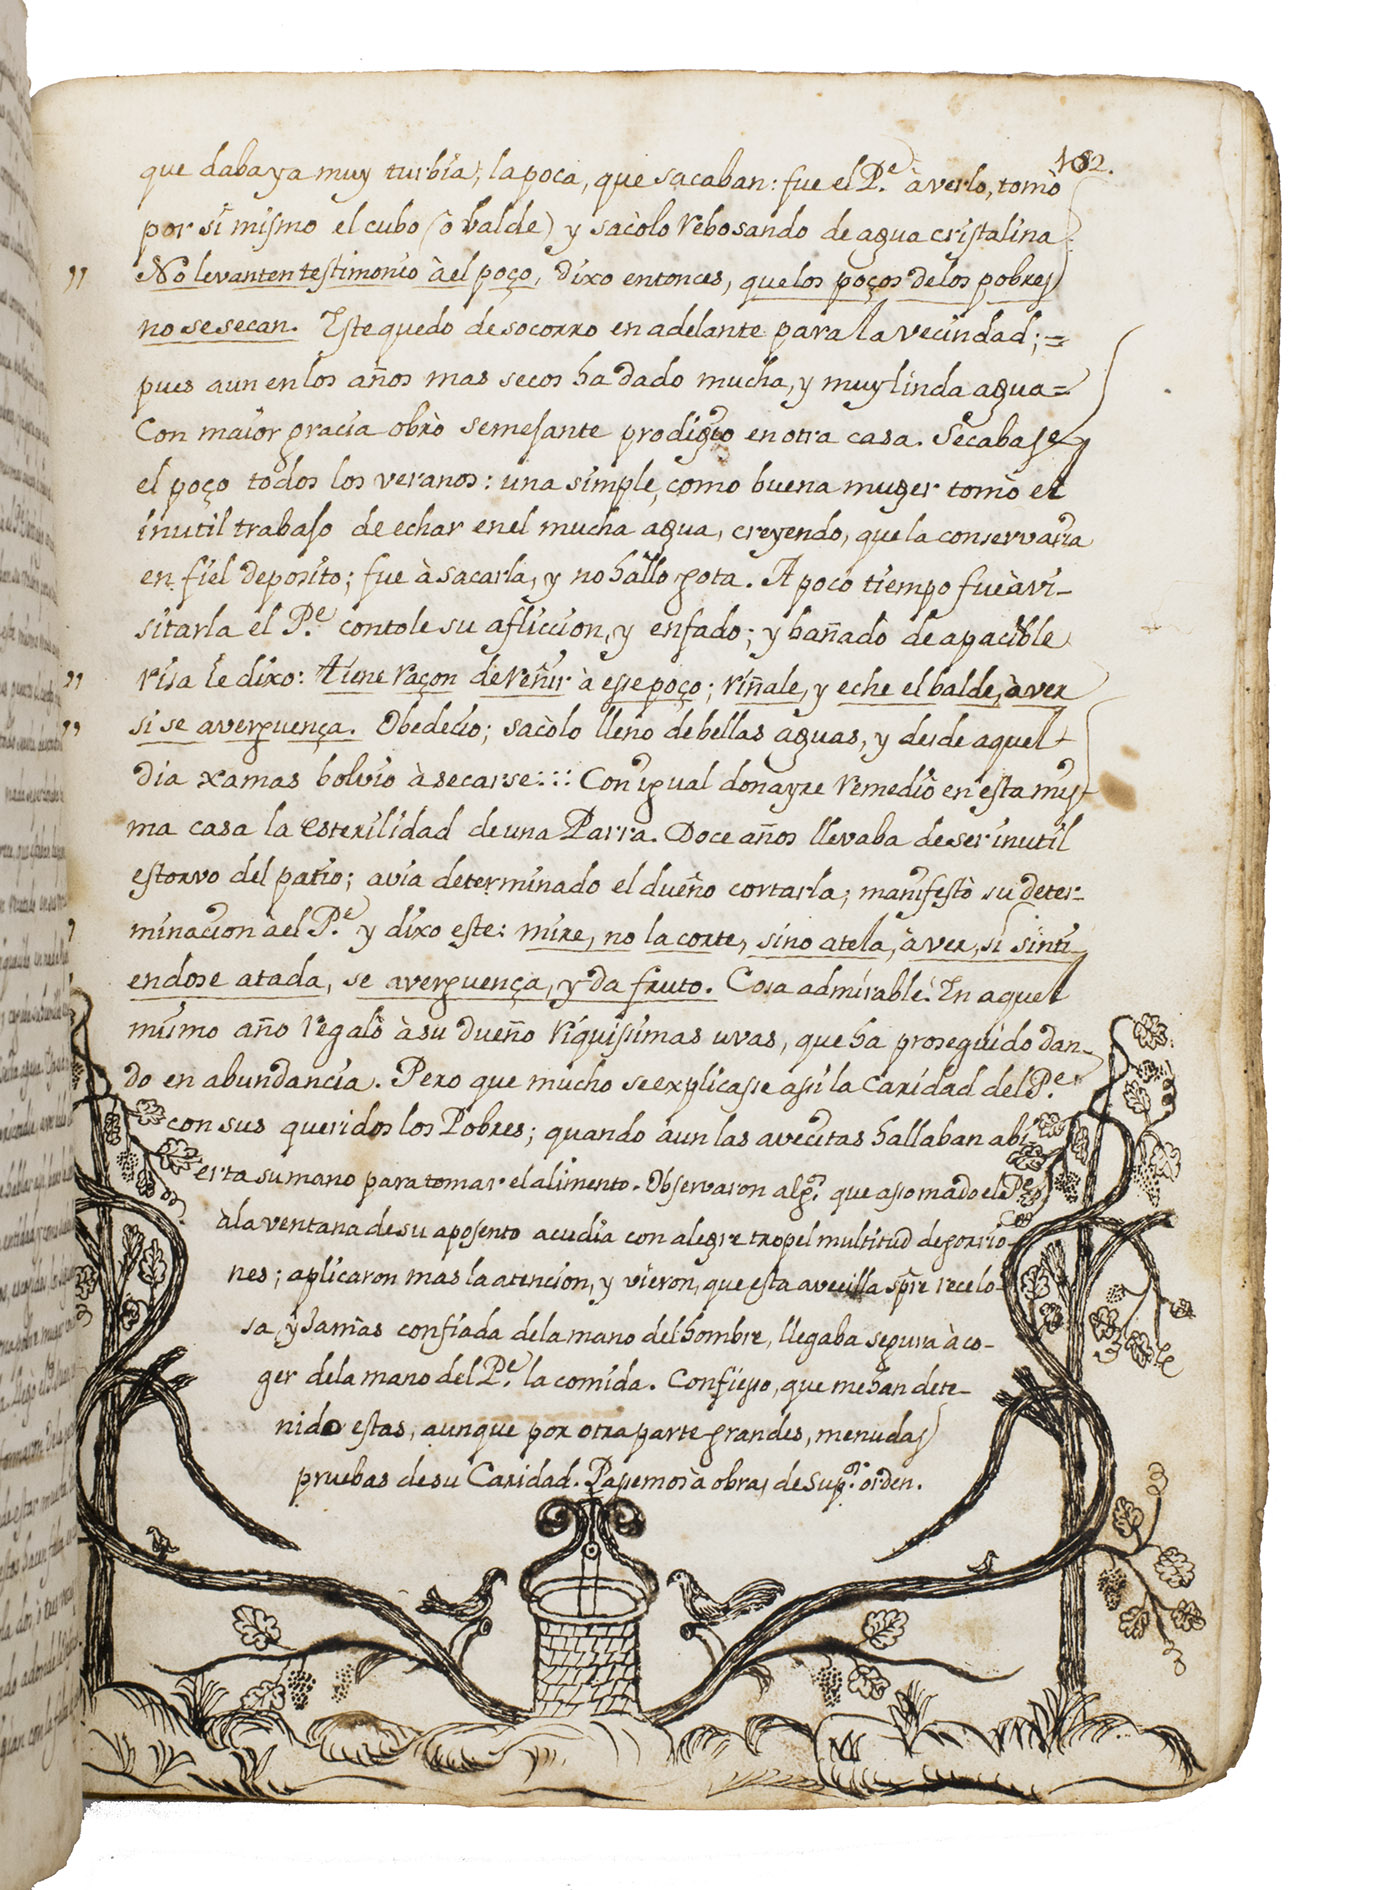 182.
que daba ya muy turbia, la poca, que sacaban: fue el P.e à verlo, tomò
por sì mismo el cubo (ò balde) y sacòlo rebosando de agua cristalina.
„ No levanten testimonio à el poço, dixo entonces, que los poços de los pobres
no se secan. Este quedo de socorro en adelante para la vecindad; =
pues aun en los años mas secos ha dado mucha, y muy linda agua =
Con maior gracia obrò semejante prodigio en otra casa. Secabase
el poço todos los veranos: una simple, como buena muger tomò el
inutil trabajo de echar en el mucha agua, creyendo, que la conservaria
en fiel deposito; fue à sacarla, y no hallo gota. A poco tiempo fue à vi-
sitarla el P.e contole su afliccion, y enfado; y bañado de apacible
„ risa le dixo: tiene raçon de reñir à esse poço; riñale, y eche el balde, à ver
„ si se averguença. Obedecio; sacòlo lleno de bellas aguas, y desde aquel
dia xamas bolvio à secarse:::: Con igual donayre remediò en esta mis-
ma casa la esterilidad de una Parra. Doce años llevaba de ser inutil
estorvo del patio; avia determinado el dueño cortarla; manifestò su deter-
minacion à el P.e y dixo este: mire, no la corte, sino atela, à ver, si sinti-
endose atada, se averguença, y da fruto. Cosa admirable! En aquel
mismo año regalò à su dueño riquissimas uvas, que ha proseguido dan-
do en abundancia. Pero que mucho se explicasse assi la Caridad del P.e
con sus queridos los Pobres; quando aun las avecitas hallaban abi-
erta su mano para tomar el alimento. Observaron alg.s que assomado el P.e
à la ventana de su aposento acudia con alegre tropel multitud de gorrio-
nes; aplicaron mas la atencion, y vieron, que esta avecilla spre recelo-
sa, y jamas confiada de la mano del hombre, llegaba segura à co-
ger de la mano del P.e la comida. Confiesso, que me han dete-
nido estas, aunque por otra parte grandes, menudas
pruebas de su Caridad. Passemos à obras de sup.r orden.